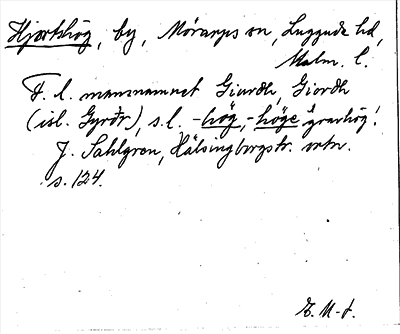 Hjortshög, by, Mörarps sn, Luggude hd,
Malm. l.
F. l. mansnamnet Giurdh, Giordh
(isl. Gyrðr), s.l. -hög, -höge 'gravhög'.
J. Sahlgren, Hälsingborgstr. ortn.
s. 124.